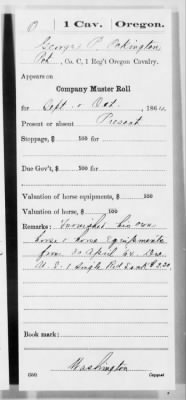 O | 1 Cav. | Oregon.
George P. Pinkington
Pvt., Co. C, 1 Reg't Oregon Cavalry.
Appears on
Company Muster Roll
for Sept. & Oct., 186
Present or absent Present
Stoppage, $ 100 for
Due Gov't, $ 100 for
Valuation of horse equipments, $ 100
Valuation of horse, $ 100
Remarks: Furnished his own
horse & horse equipments
from 30 April
U.S. 1 single
Book mark:
Washington
(359) Copyist